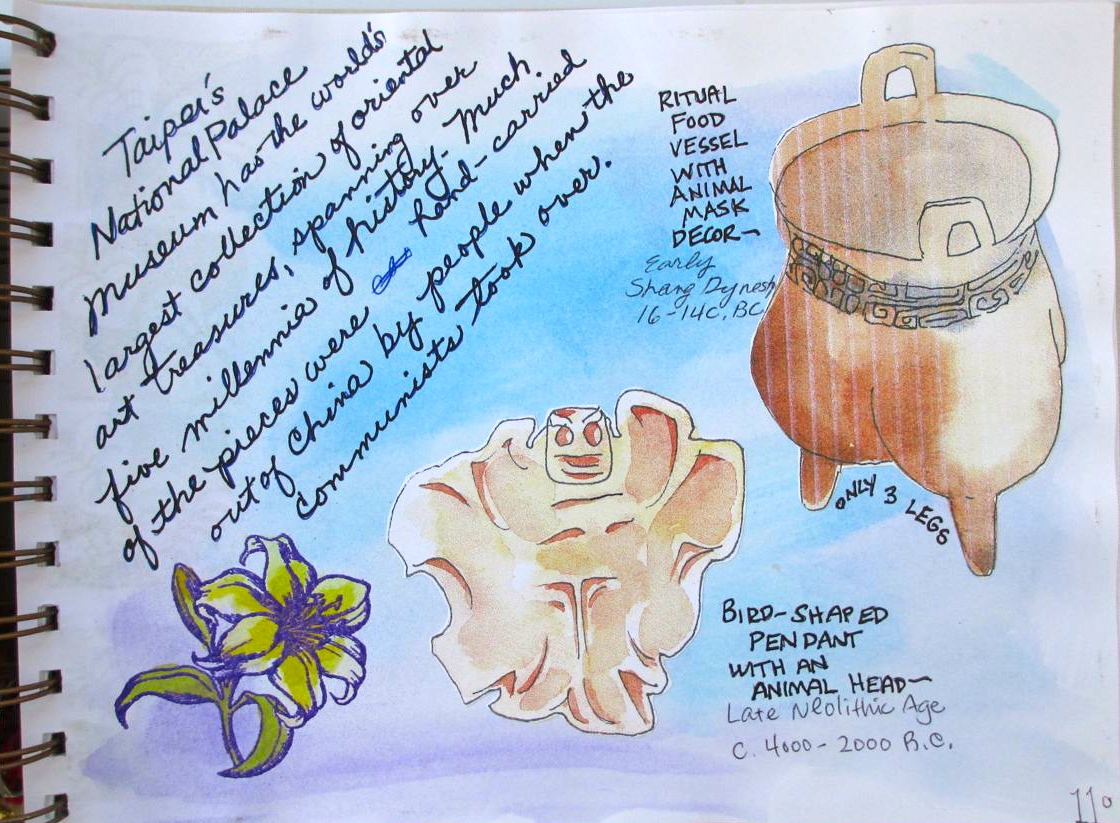 Taipei's
National Palace
Museum has the world's
largest collection of oriental
art treasures, spanning over
five millennia of history. Much
of the pieces were hand-carried
out of China by people when the
communists took over.
RITUAL
FOOD
VESSEL
WITH
ANIMAL
MASK
DECOR~
Early
Shang Dynesty
16-14C. BC
ONLY 3 LEGS
BIRD-SHAPED
PENDANT
WITH AN
ANIMAL HEAD~
Late Neolithic Age
C. 4000-2000 B.C.
110